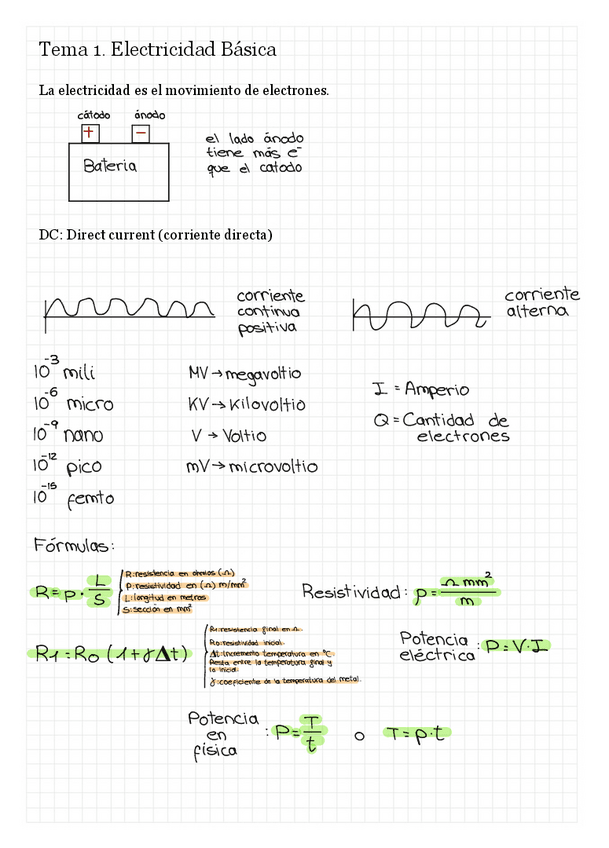 Tema 1. Electricidad Básica
La electricidad es el movimiento de electrones.
cátodo ánodo
+ −
Bateria
el lado ánodo
tiene más e⁻
que el catodo
DC: Direct current (corriente directa)
corriente
continua
positiva
corriente
alterna
10⁻³ mili
10⁻⁶ micro
10⁻⁹ nano
10⁻¹² pico
10⁻¹⁵ femto
MV → megavoltio
KV → Kilovoltio
V → Voltio
mV → microvoltio
I = Amperio
Q = Cantidad de
electrones
Fórmulas:
R = ρ · L/S
R: resistencia en ohmios (Ω)
ρ: resistividad en (Ω) m/mm²
L: longitud en metros
S: sección en mm²
Resistividad: ρ = Ω mm²/m
R1 = R0 (1 + γ Δt)
R1: resistencia final en Ω
R0: resistividad inicial
Δt: Incremento temperatura en °C
Resta entre la temperatura final y
la inicial
γ: coeficiente de la temperatura del metal.
Potencia
eléctrica : P = V · I
Potencia
en
física
: P = T/t o T = p · t